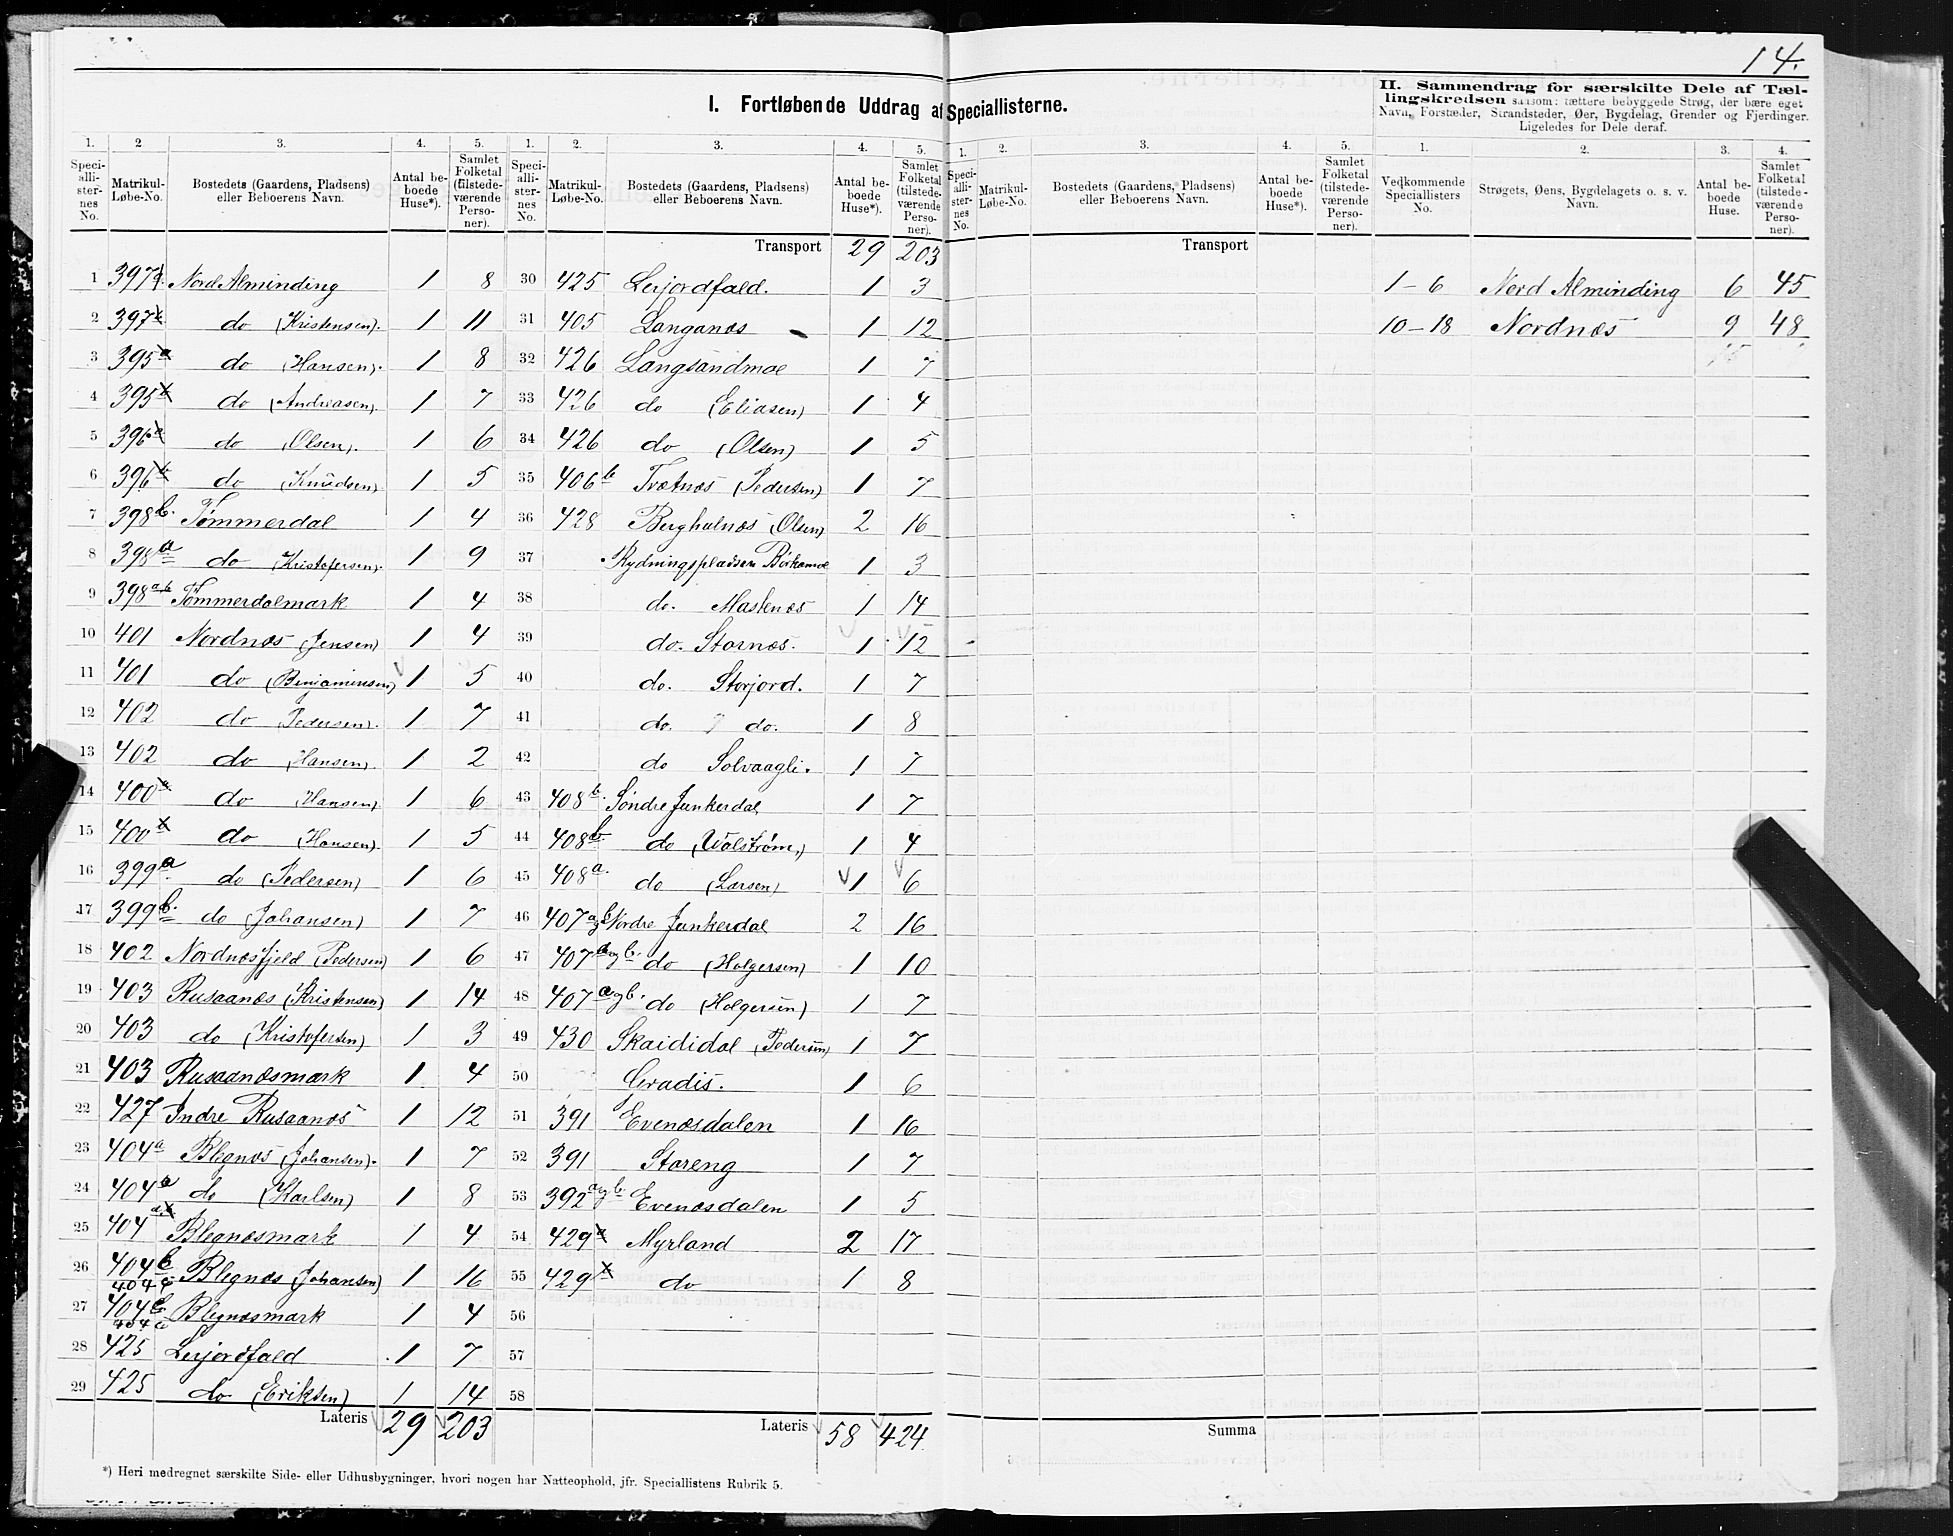 14.
I. Fortløbende Uddrag af Speciallisterne.
II. Sammendrag for særskilte Dele af Tæl-
lingskredsen saasom: tættere bebyggede Strøg, der bære eget
Navn, Forstæder, Strandsteder, Øer, Bygdelag, Grender og Fjerdinger.
Ligeledes for Dele deraf.
1. 2 3. 4. 5. 1. 2. 3. 4. 5. 1. 2. 3. 4. 5. 1. 2. 3. 4.
Speci-alli-ster-nes No. Matrikul-Løbe-No. Bostedets (Gaardens, Pladsens) eller Beboerens Navn. Antal be-boede Huse*). Samlet Folketal (tilstede-værende Perso-ner).
Speci-alli-ster-nes No. Matrikul-Løbe-No. Bostedets (Gaardens, Pladsens) eller Beboerens Navn. Antal be-boede Huse*). Samlet Folketal (tilstede-værende Perso-ner).
Speci-alli-ster-nes No. Matrikul-Løbe-No. Bostedets (Gaardens, Pladsens) eller Beboerens Navn. Antal be-boede Huse*). Samlet Folketal (tilstede-værende Perso-ner).
Vedkommende Speciallisters No. Strøgets, Øens, Bygdelagets o. s. v. Navn. Antal be-boede Huse. Samlet Folketal (tilstede-værende Perso-ner).
1 397 Nord Alminding 1 8
2 397 do (Kristensen). 1 11
3 395a do (Hansen). 1 8
4 395 do (Andreasen). 1 7
5 396a do (Olsen). 1 6
6 396b do (Knudsen) 1 5
7 398b. Tømmerdal 1 4
8 398a do (Kristofersen). 1 9
9 398ab Tømmerdalmark 1 4
10 401 Nordnæs (Jensen) 1 4
11 401 do (Benjaminsen) 1 5
12 402 do (Pedersen). 1 7
13 402 do (Hansen). 1 2
14 400a do (Hansen). 1 6
15 400 do (Hansen). 1 5
16 399a. do (Pedersen) 1 6
17 399b. do (Johansen) 1 7
18 402 Nordnæsfjeld (Pedersen) 1 6
19 403 Rusaanæs (Kristensen) 1 14
20 403 do (Kristofersen) 1 3
21 403 Rusaanæsmark 1 4
22 427 Indre Rusaanæs 1 12
23 404a Blegnæs (Johansen). 1 7
24 404a do (Karlsen) 1 8
25 404a Blegnæsmark 1 4
26 404b 404c Blegnæs (Johansen) 1 16
27 404b 404c Blegnæsmark 1 4
28 425 Lerjordfald 1 7
29 425 do (Eriksen) 1 14
Lateris 29 203
Transport 29 203
30 425 Lerjordfald. 1 3
31 405 Langanæs 1 12
32 426 Langsandmoe 1 7
33 426 do (Eliasen) 1 4
34 426 do (Olsen) 1 5
35 406b Tvætnæs (Pedersen) 1 7
36 428 Berghulnæs (Olsen) 2 16
37 Rydningspladsen 1 3
38 do. Mastenæs 1 14
39 do. Stornæs. 1 12
40 do. Storjord. 1 7
41 do. do. 1 8
42 do Solvaagli. 1 7
43 408b. Søndre Junkerdal 1 7
44 408b do (Wolstrøm,) 1 4
45 408a. do (Larsen) 1 6
46 407a b Nordre Junkerdal 2 16
47 407a og b. do (Holgersen) 1 10
48 407a og b. do (Holgersen) 1 7
49 430 Skaididal (Pedersen) 1 7
50 Gradis. 1 6
51 391 Evenæsdalen 1 16
52 391 Storeng 1 7
53 392a og b Evenæsdalen 1 5
54 429a Myrland 2 17
55 429 do 1 8
56
57
58
Lateris 58 424
Transport
Summa
1-6 Nord Alminding 6 45
10-18 Nordnæs 9 48
15
*) Heri medregnet særskilte Side- eller Udhusbygninger, hvori nogen har Natteophold, jfr. Speciallistens Rubrik 5.